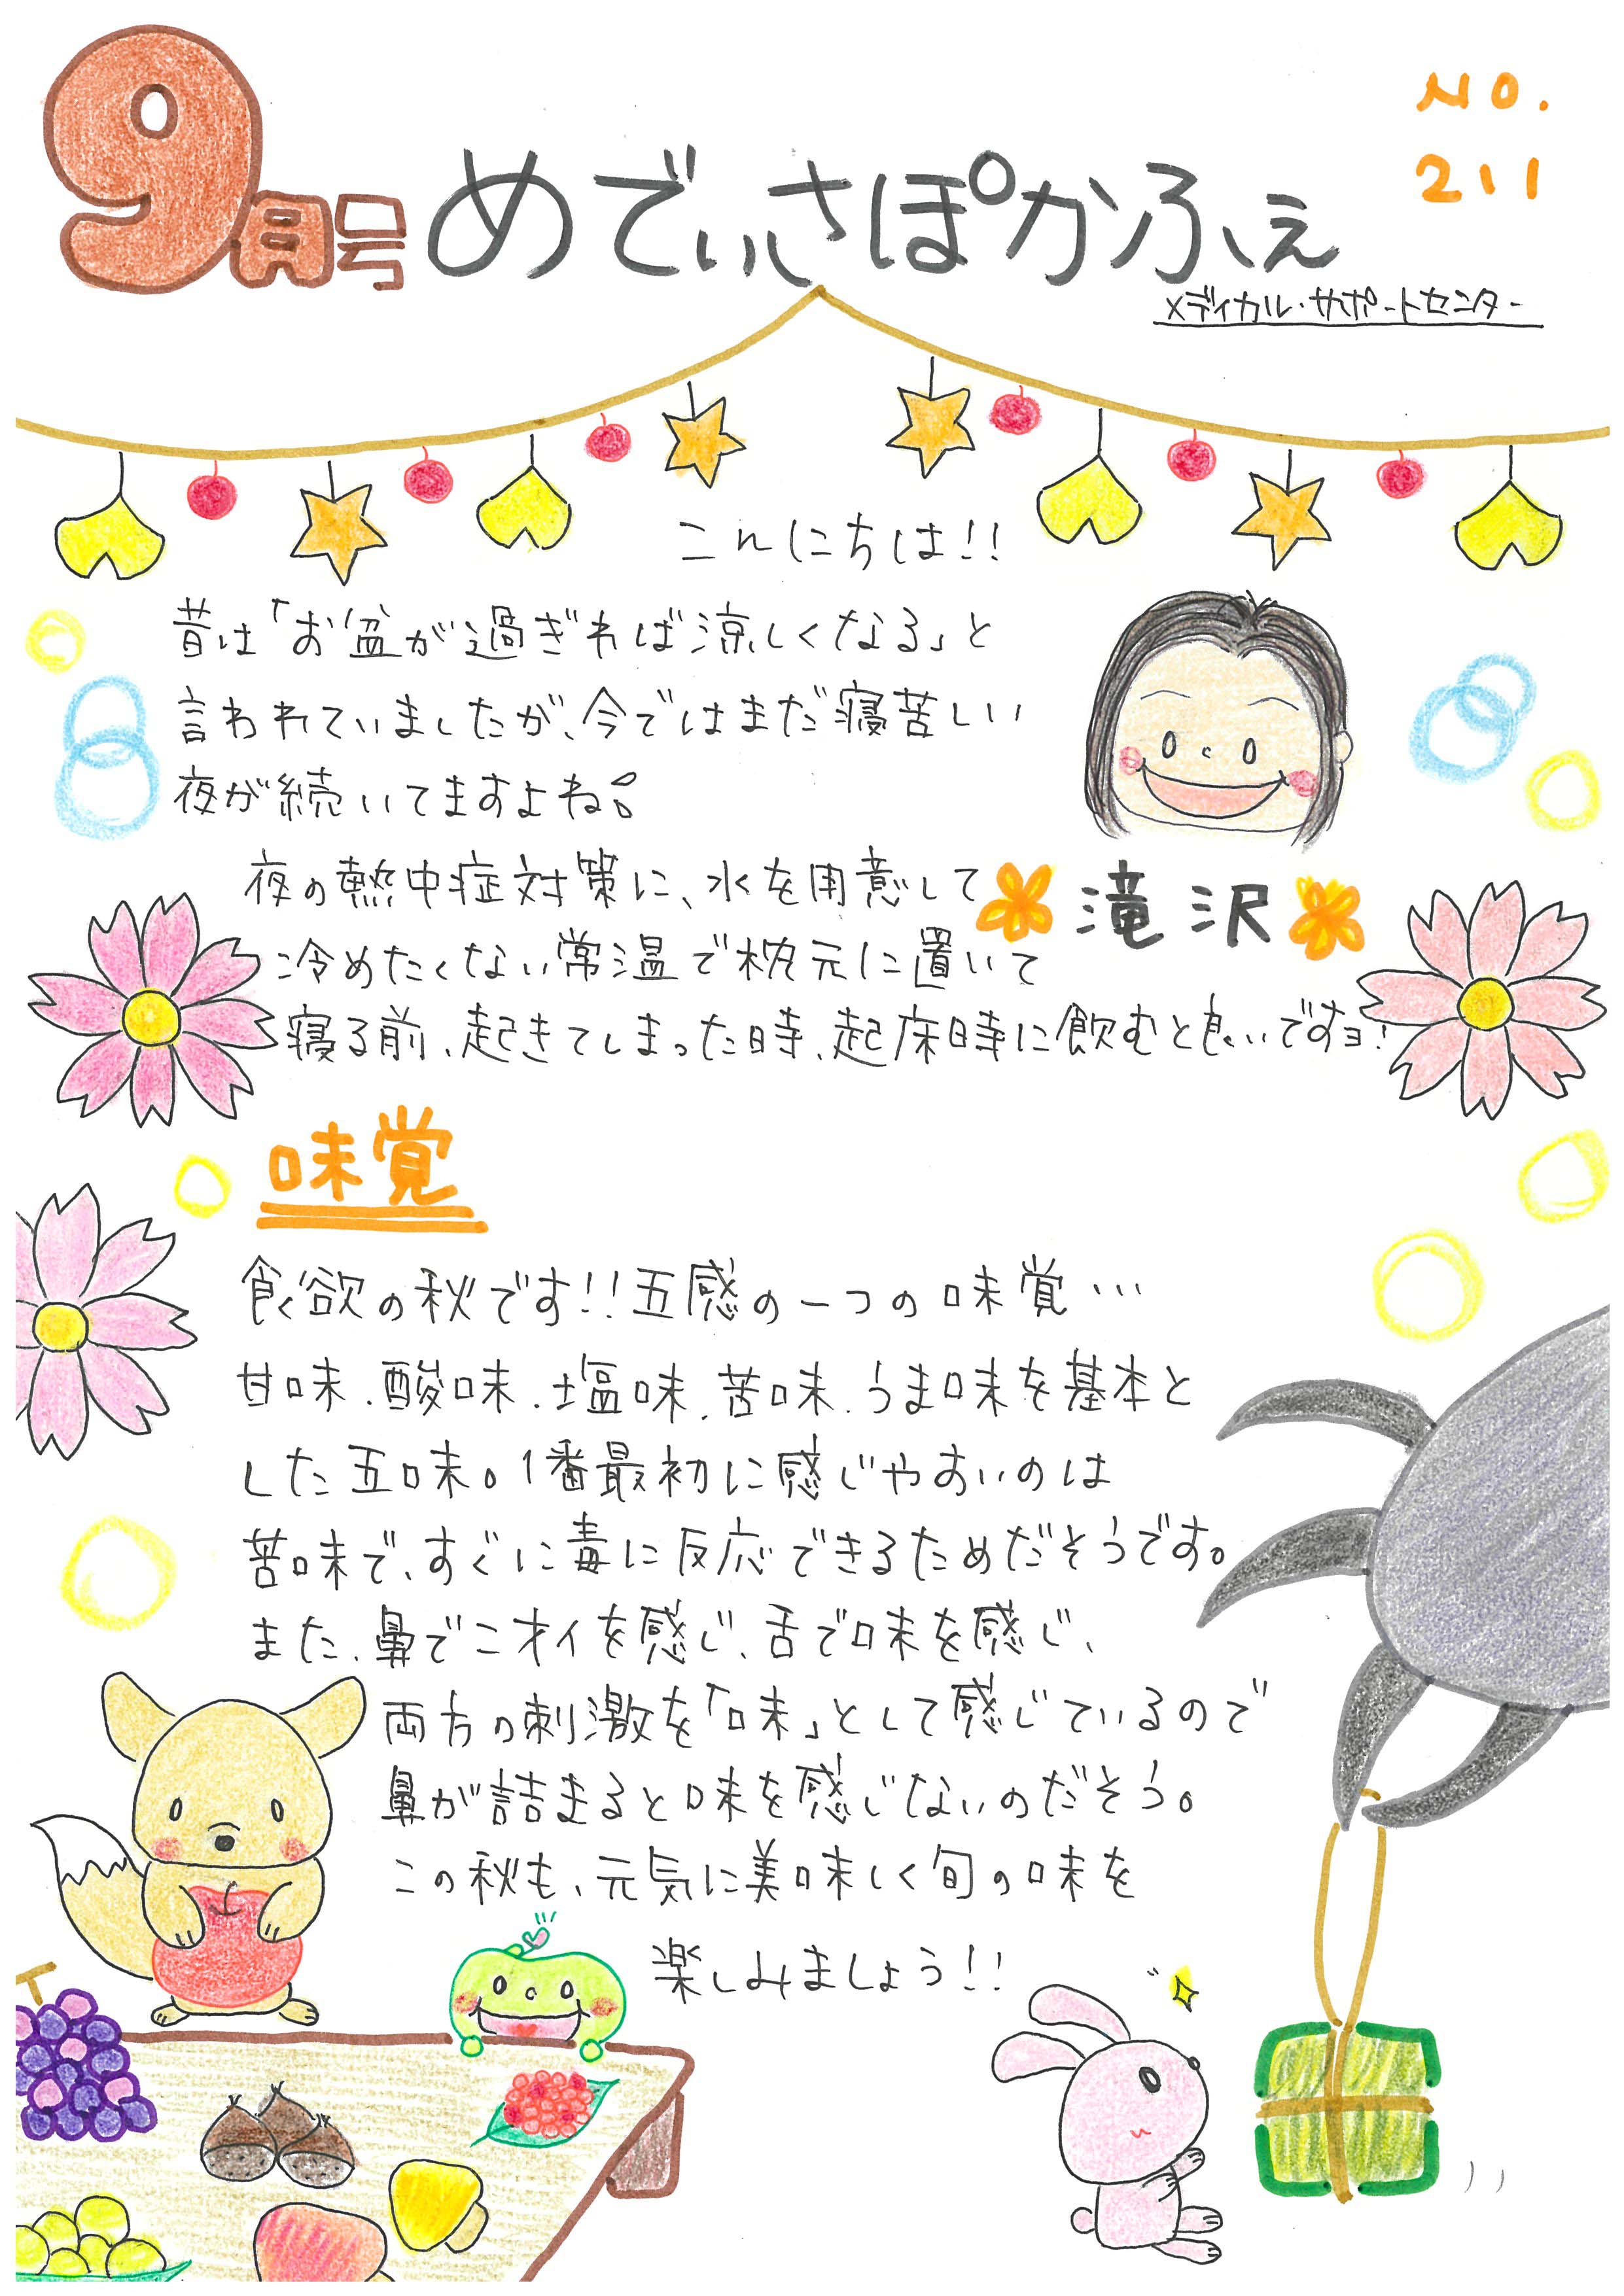 9月号
めでぃさぽかふぇ
NO.
211
メディカル・サポートセンター
こんにちは!!
昔は「お盆が過ぎれば涼しくなる」と
言われていましたが、今ではまだ寝苦しい
夜が続いてますよね。
夜の熱中症対策に、水を用意して
冷めたくない常温で枕元に置いて
寝る前、起きてしまった時、起床時に飲むと良いですヨ!
滝沢
味覚
食欲の秋です!!五感の一つの味覚…
甘味、酸味、塩味、苦味、うま味を基本と
した五味。1番最初に感じやすいのは
苦味で、すぐに毒に反応できるためだそうです。
また、鼻でニオイを感じ、舌で味を感じ、
両方の刺激を「味」として感じているので
鼻が詰まると味を感じないのだそう。
この秋も、元気に美味しく旬の味を
楽しみましょう!!